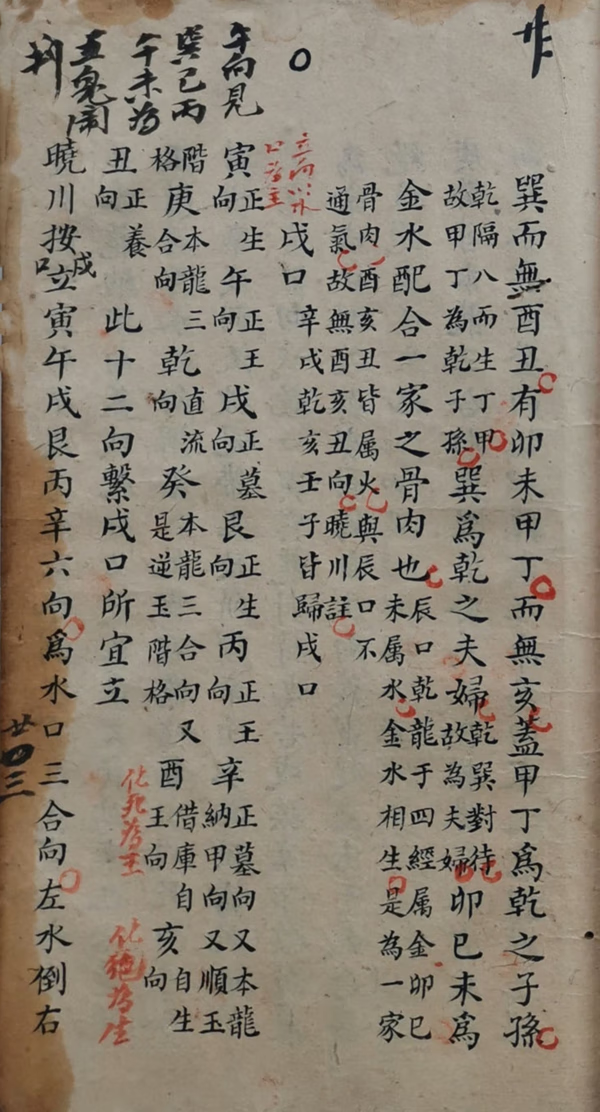 廿
巽而無酉丑有卯未甲丁而無亥蓋甲丁爲乾之子孫
乾隔八而生丁甲
故甲丁為乾子孫
巽爲乾之夫婦
乾巽對待
故為夫婦
卯巳未爲
金水配合一家之骨肉也
辰口乾龍于四經属金卯巳
未属水金水相生是為一家
骨肉酉亥丑皆属火與辰口不
通氣故無酉亥丑向曉川註
立向以水
口為主
戌口
辛戌乾亥壬子皆歸戌口
午向見
巽巳丙
午未为
五鬼闹
判
寅向
正生
午向
正王
戌向
正墓
艮向
正生
丙向
正王
辛
正墓向又本龍
納甲向又順玉
階格
庚
本龍三
合向
乾向
直流
癸
本龍三合向又
是逆玉階格
酉
借庫自
王向
化死為王
亥向
自生
化絶為生
丑向
正養
此十二向繫戌口所宜立
曉川按立寅午戌艮丙辛六向爲水口三合向左水倒右
戌口
廿〇三